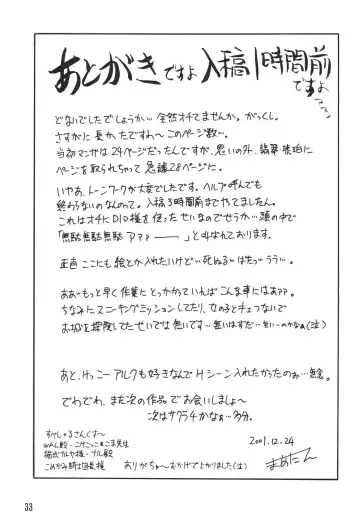 あとがきですよ 入稿1時間前
ですよ
どないでしたでしょうか… 全然オチてませんか。がっくし。
さすがに長かったですわ〜このページ数…。
当初マンガは24ページだったんですが、思いの外、翡翠・琥珀に
ページを取られちゃって急遽28ページに。
いやあ、トーンワークが大変でしたです。ヘルプ呼んでも
終わらないのなんのって。入稿3時間前までやてましたん。
これはオチにDIO様を使ったせいなのでせうか…頭の中で
「無駄無駄無駄ァァァーーー」と叫なれております。
正直ここにも絵とか入れたいけど…死ぬるはたっ…うぅ…。
ああ…もっと早く作業にとっかかっていればこんな事にはぁ??。
ちなみにスニーキングミッションしてたり、女の子とチェつないで
お城を探険してたせいでは無いです…無いはずだ…(泣)
あと、けっこーアルクも好きなんでHシーン入れたかったのお…無念。
でわでわ、また次の作品でお会いしましょ〜
次はサクラ4かなぁ…多分。
すぺしゃるさんくす〜
2001.12.24
ありがちゅ〜おかげで上がりました(泣)
まあたん
33